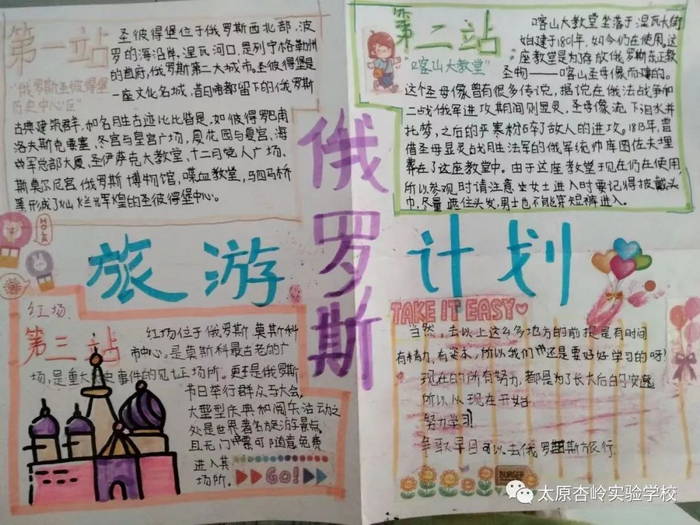 第一站
"俄罗斯圣彼得堡
历史中心区"
圣彼得堡位于俄罗斯西北部,波
罗的海沿岸,涅瓦河口,是列宁格勒州
的首府,俄罗斯第二大城市。圣彼得堡是
一座文化名城,昔日帝都留下的俄罗斯
古典建筑群,和名胜古迹比比皆是,如彼得罗巴甫
洛夫斯克要塞,冬宫与皇宫广场,夏花园与夏宫,海
军总部大厦,圣伊萨克大教堂,十二月党人广场、
斯莫尔尼宫俄罗斯博物馆,喋血教堂,马四马桥
形成了灿烂辉煌的圣彼得堡中心。
第二站
"喀山大教堂"
喀山大教堂坐落于涅瓦大街
始建于1801年,如今仍在使用,这
座教堂是为存放俄罗斯东正教
圣物——喀山圣母像而建的。
这个圣母像曾有很多传说,据说在俄法战争和
二战俄军进攻期间则显灵,圣母像流下泪水并
托梦,之后的平票粉碎了敌人的进攻。1813年,曾
借圣母显灵战胜法军的俄军统帅库图佐夫埋
葬在了这座教堂中。由于这座教堂现在仍在使用,
所以参观时请注意坐女士进入时要记得披戴头
巾,尽量遮住头发,男士也不能穿短裤进入。
俄罗斯
旅游 计划
红场
第三站
红场位于俄罗斯莫斯科
市中心,是莫斯科最古老的广
场,是重大史事件的见证场所,更是俄罗斯
节日举行群众与大会,
大型庆典和阅兵活动之
处是世界著名旅游景点
且无门票可随意免费
进入其
场所。
GO!
TAKE IT EASY
当然,去以上这么多地方的前提是有时间
有精力,有资本,所以我们也还是要好好学习的呀!
现在的所有努力,都是为了长大后的安逸,
所以从现在开始
努力学习!
争取早日可以去俄罗斯旅行。
BURGER
太原杏岭实验学校